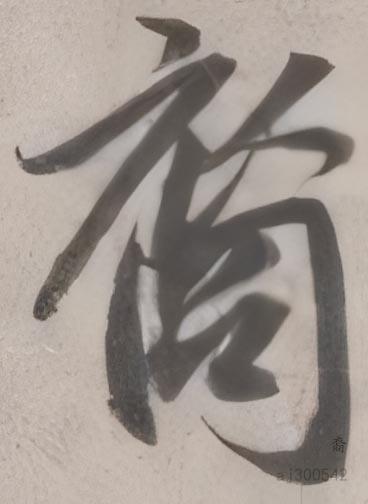 裔
裔
aj300542